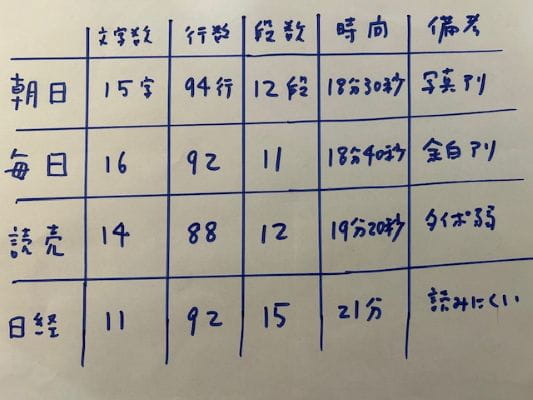 文字数 行数 段数 時間 備考
朝日 15字 94行 12段 18分30秒 写真アリ
毎日 16 92 11 18分40秒 余白アリ
読売 14 88 12 19分20秒 タイポ弱
日経 11 92 15 21分 読みにくい